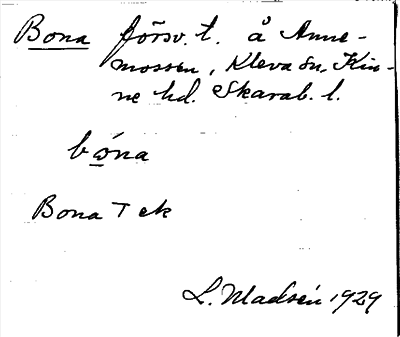 Bona försv. t. å Anne-
mossen, Kleva sn, Kin-
ne hd. Skarab. l.
bóna
Bona T ek
L. Madsén 1929